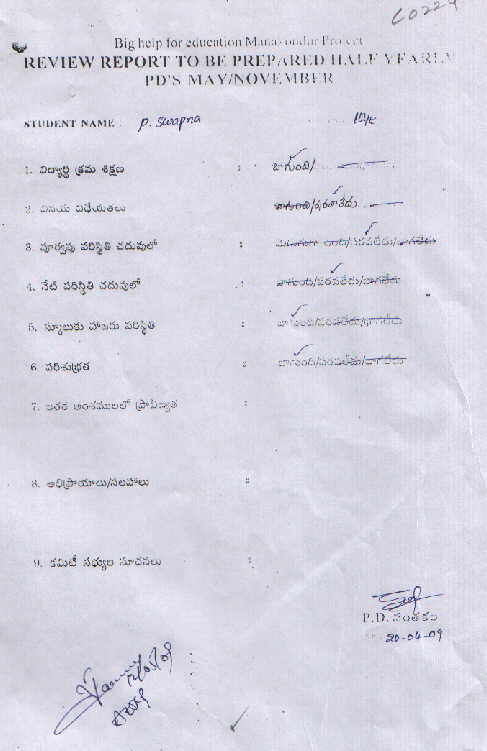 C0224
Big help for education Manakondur Project
REVIEW REPORT TO BE PREPARED HALF YEARLY
PD'S MAY/NOVEMBER
STUDENT NAME : P. Swapna
1. విద్యార్థి క్రమ శిక్షణ : బాగుంది/
2. వినయ విధేయతలు బాగుంది/పరవాలేదు
3. పూర్వపు పరిస్థితి చదువులో : బాగుంది/పరవలేదు/బాగలేదు
4. నేటి పరిస్థితి చదువులో : బాగుంది/పరవలేదు/బాగలేదు
5. స్కూలుకు హాజరు పరిస్థితి : బాగుంది/పరవలేదు/బాగలేదు
6. పరిశుభ్రత : బాగుంది/పరవలేదు/బాగలేదు
7. ఇతర అంశములలో ప్రావీణ్యత :
8. అభిప్రాయాలు/సలహాలు :
9. కమిటీ సభ్యుల సూచనలు :
P.D. సంతకం
20-04-09